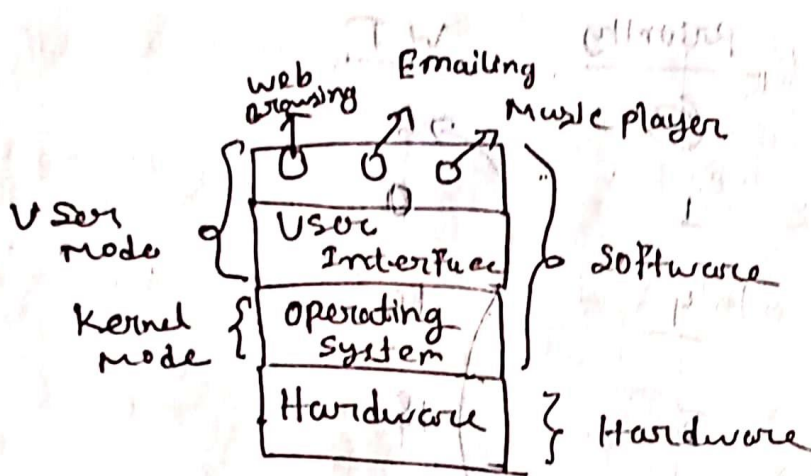 Emailing
web
browsing
Music player
User
mode
User
Interface
Software
Kernel
mode
Operating
System
Hardware
Hardware